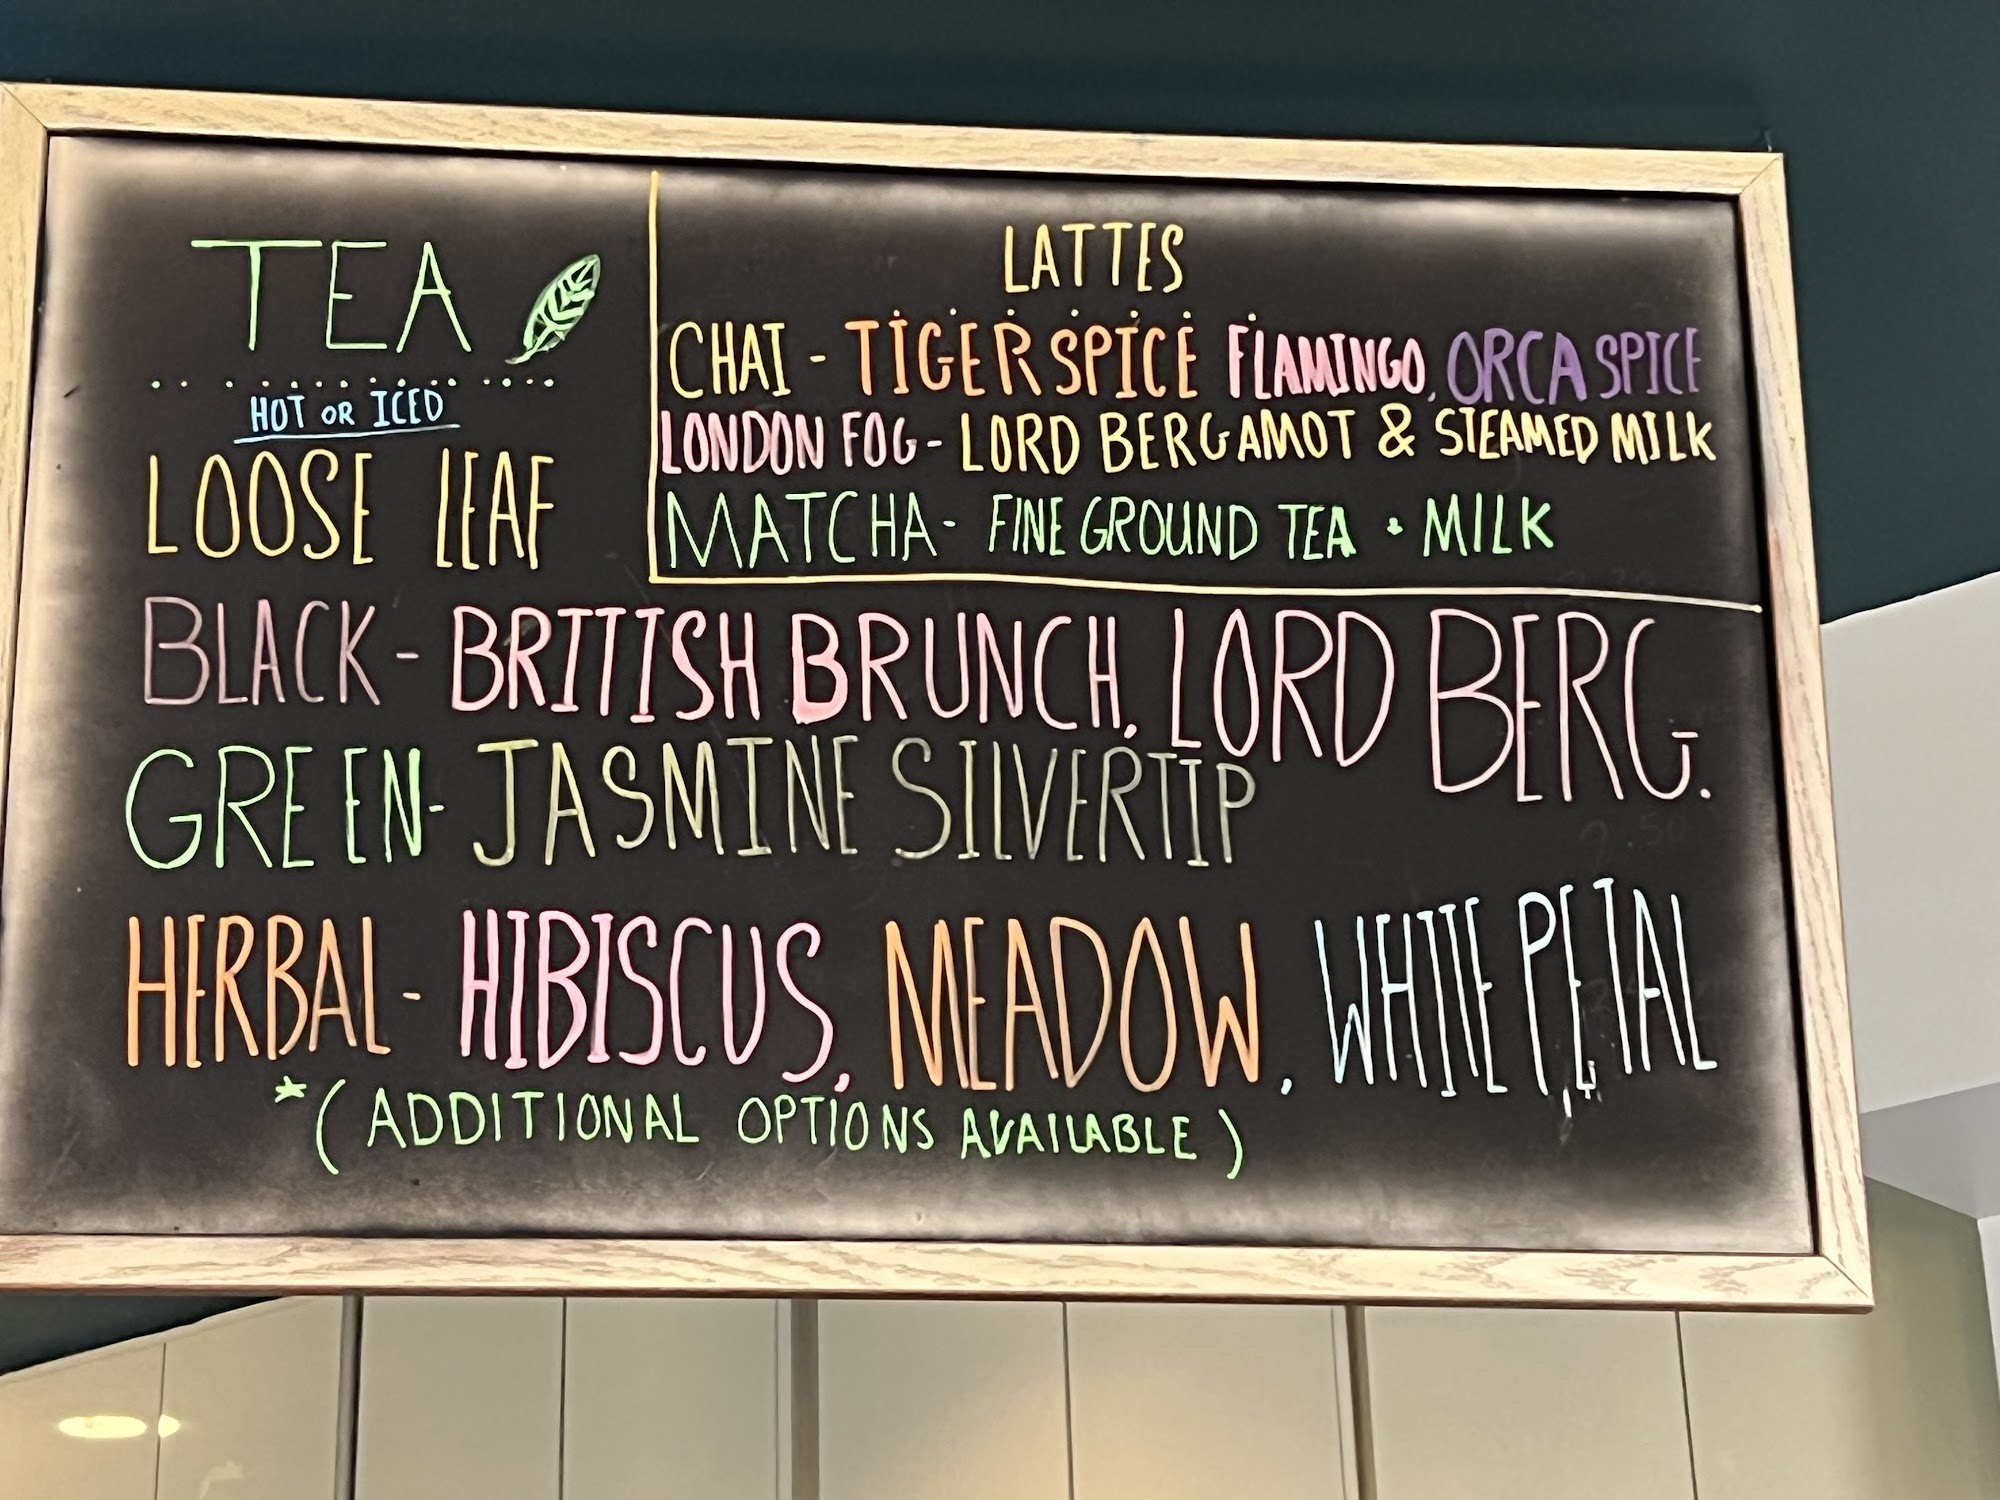 TEA
HOT OR ICED
LOOSE LEAF
LATTES
CHAI - TIGER SPICE FLAMINGO, ORCA SPICE
LONDON FOG - LORD BERGAMOT & STEAMED MILK
MATCHA - FINE GROUND TEA + MILK
BLACK - BRITISH BRUNCH, LORD BERG.
GREEN - JASMINE SILVERTIP
HERBAL - HIBISCUS, MEADOW, WHITE PETAL
*(ADDITIONAL OPTIONS AVAILABLE)